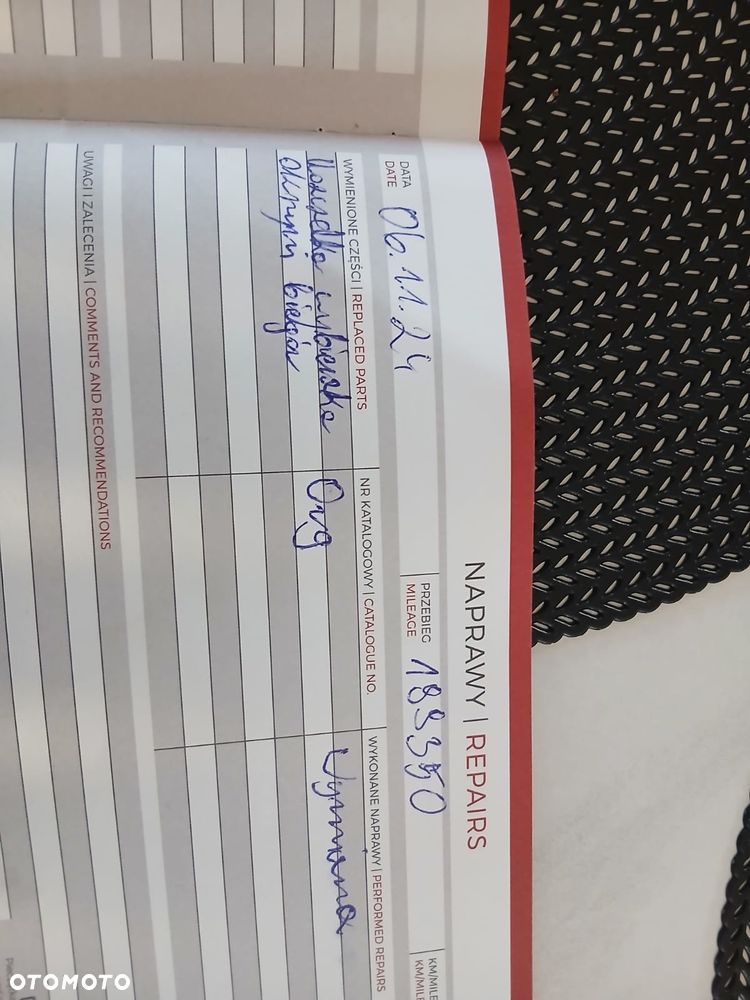 NAPRAWY | REPAIRS
DATA
DATE
06.11.24
PRZEBIEG
MILEAGE
KM/MILE
KM/MILE
WYMIENIONE CZĘŚCI | REPLACED PARTS
NR KATALOGOWY | CATALOGUE NO.
WYKONANE NAPRAWY | PERFORMED REPAIRS
Uszczelka wybieraka
Org
Wymiana
skrzyni biegów
UWAGI I ZALECENIA | COMMENTS AND RECOMMENDATIONS
OTOMOTO